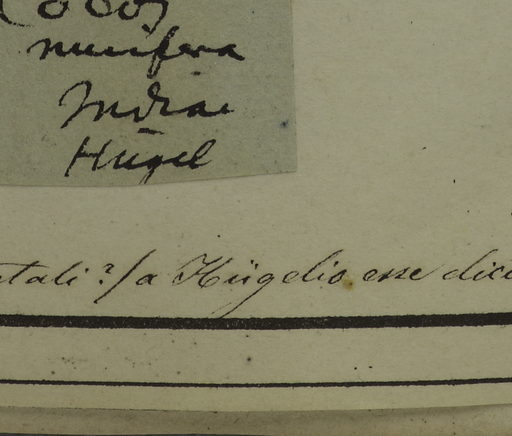 Cocos
nucifera
Indiae
Hügel
tali?/a Hügelio esse dici